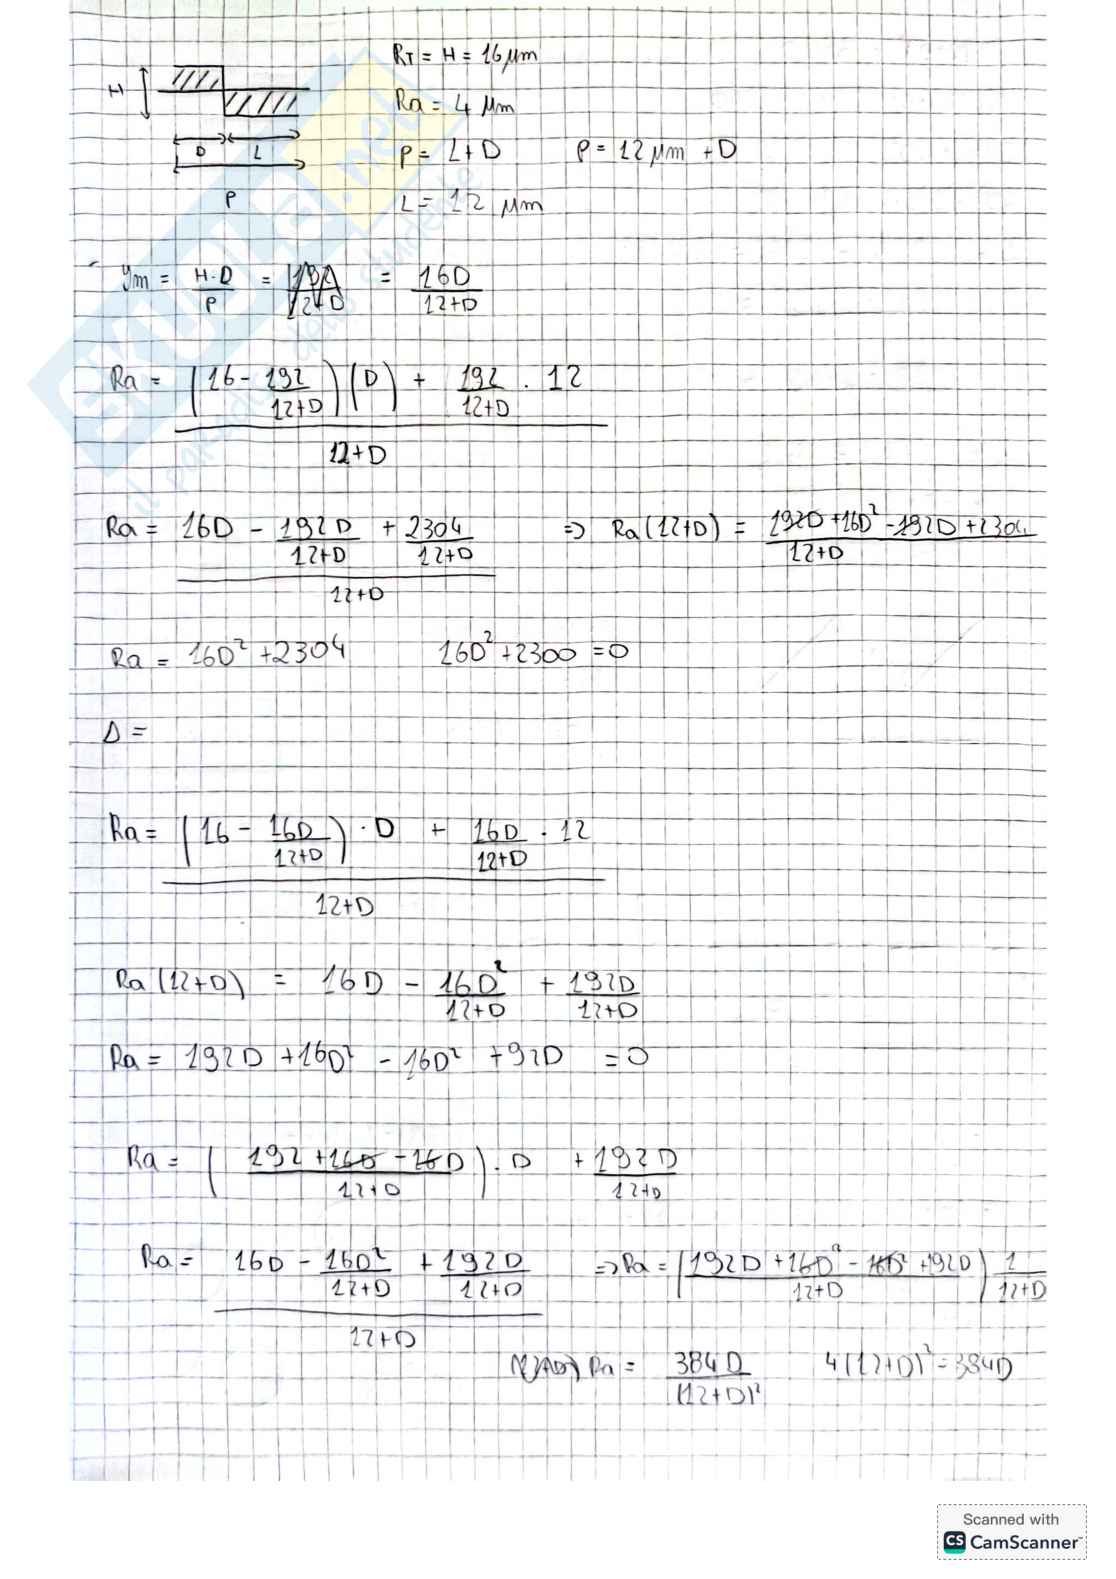 RT = H = 16 μm
H
Ra = 4 μm
D L
P = L+D P = 12 μm + D
P
L = 12 μm
Ym = H·D/P = 16D/12+D
Ra = (16 - 192/12+D)(D) + 192/12+D · 12
12+D
Ra = 16D - 192D/12+D + 2304/12+D ⇒ Ra(12+D) = 192D+16D²-192D+2304/12+D
12+D
Ra = 16D² + 2304 16D² + 2300 = 0
Δ =
Ra = (16 - 16D/12+D) · D + 16D/12+D · 12
12+D
Ra (12+D) = 16D - 16D²/12+D + 192D/12+D
Ra = 192D + 16D² - 16D² + 92D = 0
Ra = (192 + 16D - 16D/12+D) · D + 192D/12+D
Ra = 16D - 16D²/12+D + 192D/12+D ⇒ Ra = (192D + 16D² - 16D² + 92D/12+D) 1/12+D
12+D
Ra = 384D/(12+D)² 4(12+D)² = 384D
SKUOLA.net
Scanned with
CS CamScanner